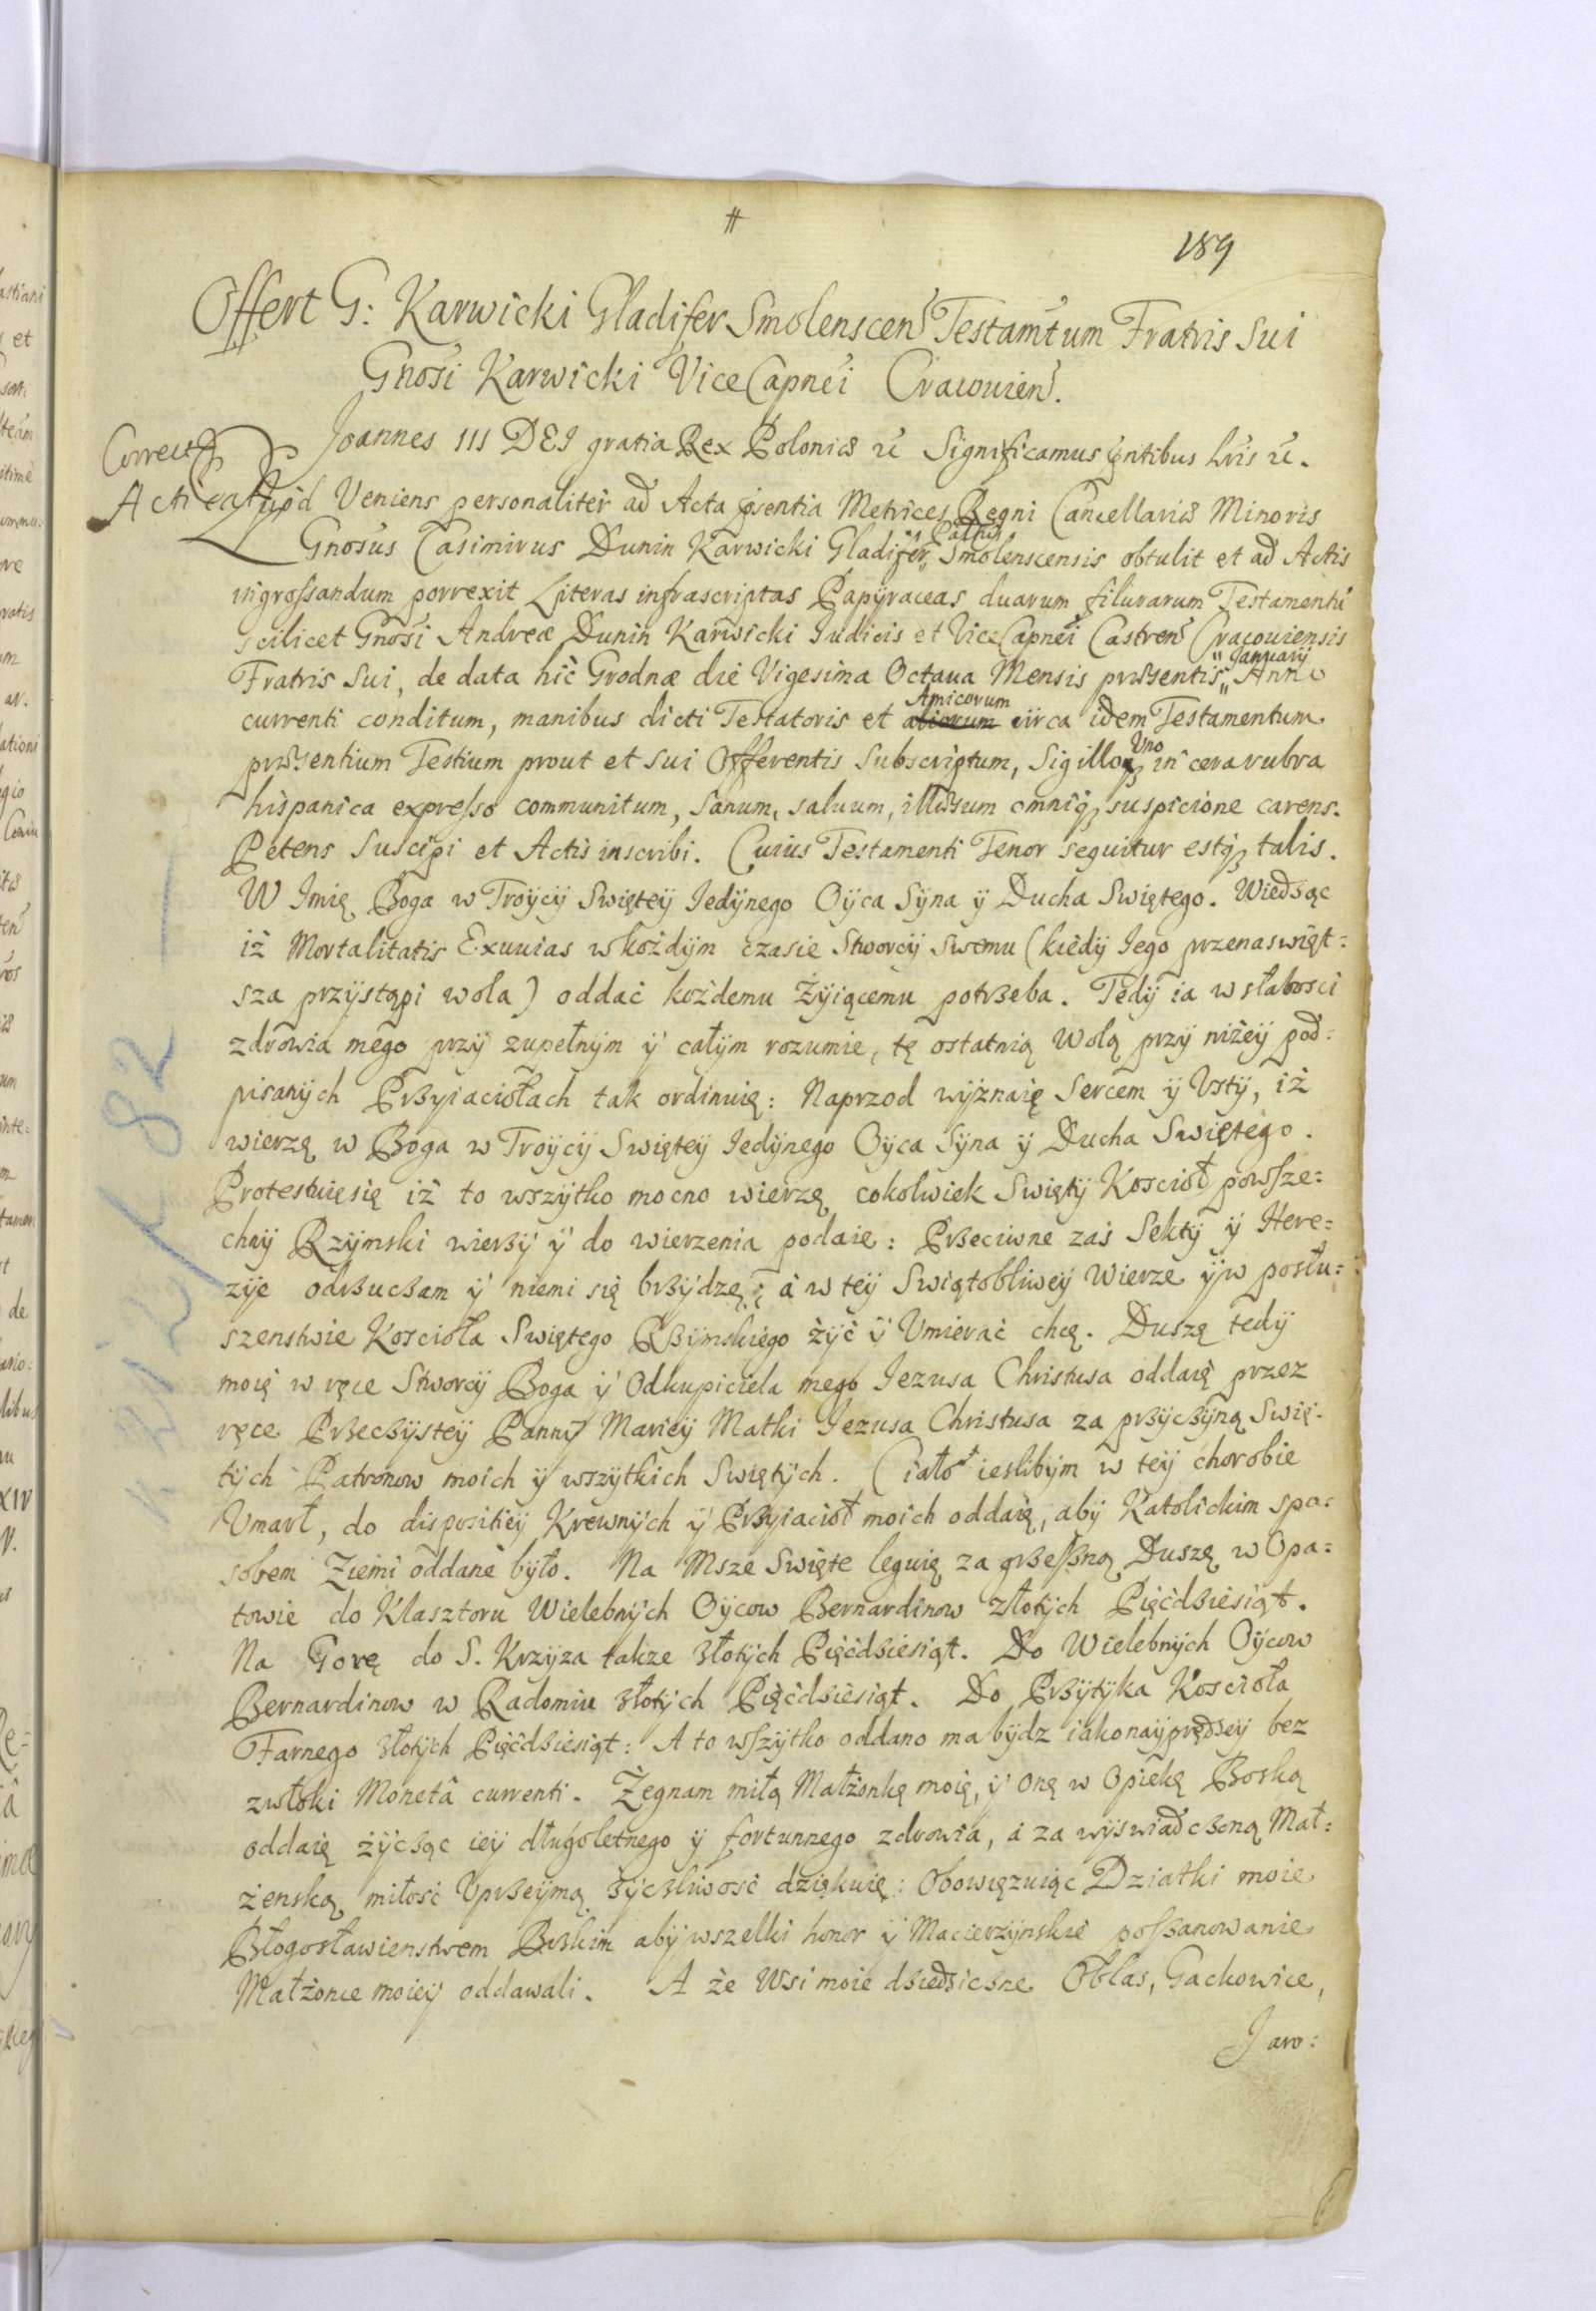 #
189
Offert G: Karwicki Gladifer Smolenscen Testamtum Fratris Sui
Gnosi Karwicki ViceCapnei Cracouien.
Joannes III DEI gratia Rex Poloniæ &c Significamus pntibus Lris &c.
Correcta
Acticat
Quod Veniens personaliter ad Acta psentia Metrices Regni Cancellariæ Minoris
Gnosus Casimirus Dunin Karwicki Gladifer Smolenscensis obtulit et ad Actis
ingrossandum porrexit Literas infrascriptas Papyraceas duarum filurarum Testamenti
scilicet Gnosi Andreæ Dunin Karwicki Iudicis et ViceCapnei Castren Cracouiensis
" January
Fratris Sui, de data hic Grodnæ die Vigesima Octaua Mensis præsentis " Anno
Amicorum
currenti conditum, manibus dicti Testatoris et aliorum circa idem Testamentum
Uno
præsentium Testium prout et sui Offerentis Subscriptum, Sigilloq in cera rubra
hispanica expresso communitum, Sanum, saluum, illæsum omniq suspicione carens.
Petens Suscipi et Actis inscribi. Cuius Testamenti Tenor sequitur estq talis.
W Imię Boga w Troycy Swiętey Iedynego Oyca Syna y Ducha Swiętego. Wiedząc
iż Mortalitatis Exuuias w każdym czasie Stworcy Swemu (kiedy Iego przenaswięt=
sza przystąpi wola) oddać każdemu Żyiącemu potrzeba. Tedy ia w słabosci
zdrowia mego przy zupełnym y całym rozumie, tę ostatnią Wolą przy niżey pod=
pisanych Przyiaciołach tak ordinuię: Naprzod wyznaię Sercem y Vsty, iż
wierzę w Boga w Troycy Swiętey Iedynego Oyca Syna y Ducha Swiętego.
Protestuię się iż to wszytko mocno wierzę cokolwiek Swięty Koscioł powsze=
chny Rzymski wierzy y do wierzenia podaie: Przeciwne zaś Sekty y Here=
zye odrzucam y niemi się brzydzę; a w tey Swiątobliwey Wierze y w posłu=
szenstwie Koscioła Swiętego Rzymskiego żyć y Vmierać chcę. Duszę tedy
moię w ręce Stworcy Boga y Odkupiciela mego Iezusa Christusa oddaię przez
ręce Przeczystey Panny Mariey Matki Iezusa Christusa za przyczyną Swię=
tych Patronow moich y wszytkich Swiętych. Ciało iesłibym w tey chorobie
Vmarł, do dispositiey Krewnych y Przyiacioł moich oddaię, aby Katolickim spo=
sobem Ziemi oddane było. Na Msze Swięte leguię za grzeszną Duszę w Opa=
towie do Klasztoru Wielebnych Oycow Bernardinow złotych Pięćdziesiąt.
Na Gorę do S. Krzyza takze złotych Pięćdziesiąt. Do Wielebnych Oycow
Bernardinow w Radomiu złotych Pięćdziesiąt. Do Przytyka Koscioła
Farnego złotych Pięćdziesiąt: A to wszytko oddano ma bydz iako nayprędzey bez
zwłoki Monetâ currenti. Żegnam miłą Małżonkę moię, y onę w Opiekę Boską
oddaię życząc iey długoletnego y fortunnego zdrowia, a za wyswiadczoną Mał=
żenską miłość Vprzeymą życzliwość dziękuię: Obowięzuiąc Dziatki moie
Błogosławienstwem Boskim aby wszelki honor y Macierzynskie poszanowanie
Małżonce moiey oddawali. A że Wsi moie dziedziczne Oblas, Gackowice,
Jaro=